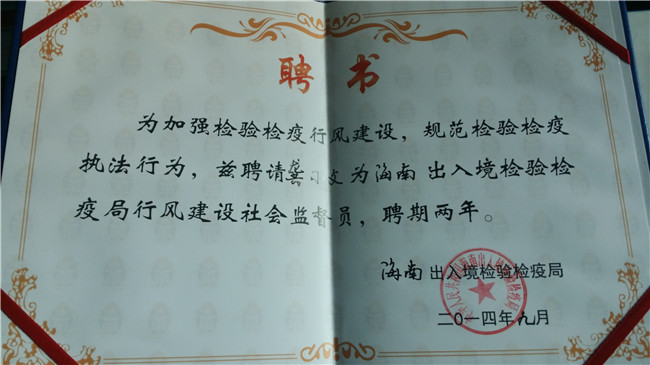 聘书
为加强检验检疫行风建设，规范检验检疫
执法行为，兹聘请龚文为海南出入境检验检
疫局行风建设社会监督员，聘期两年。
海南出入境检验检疫局
二〇一四年九月